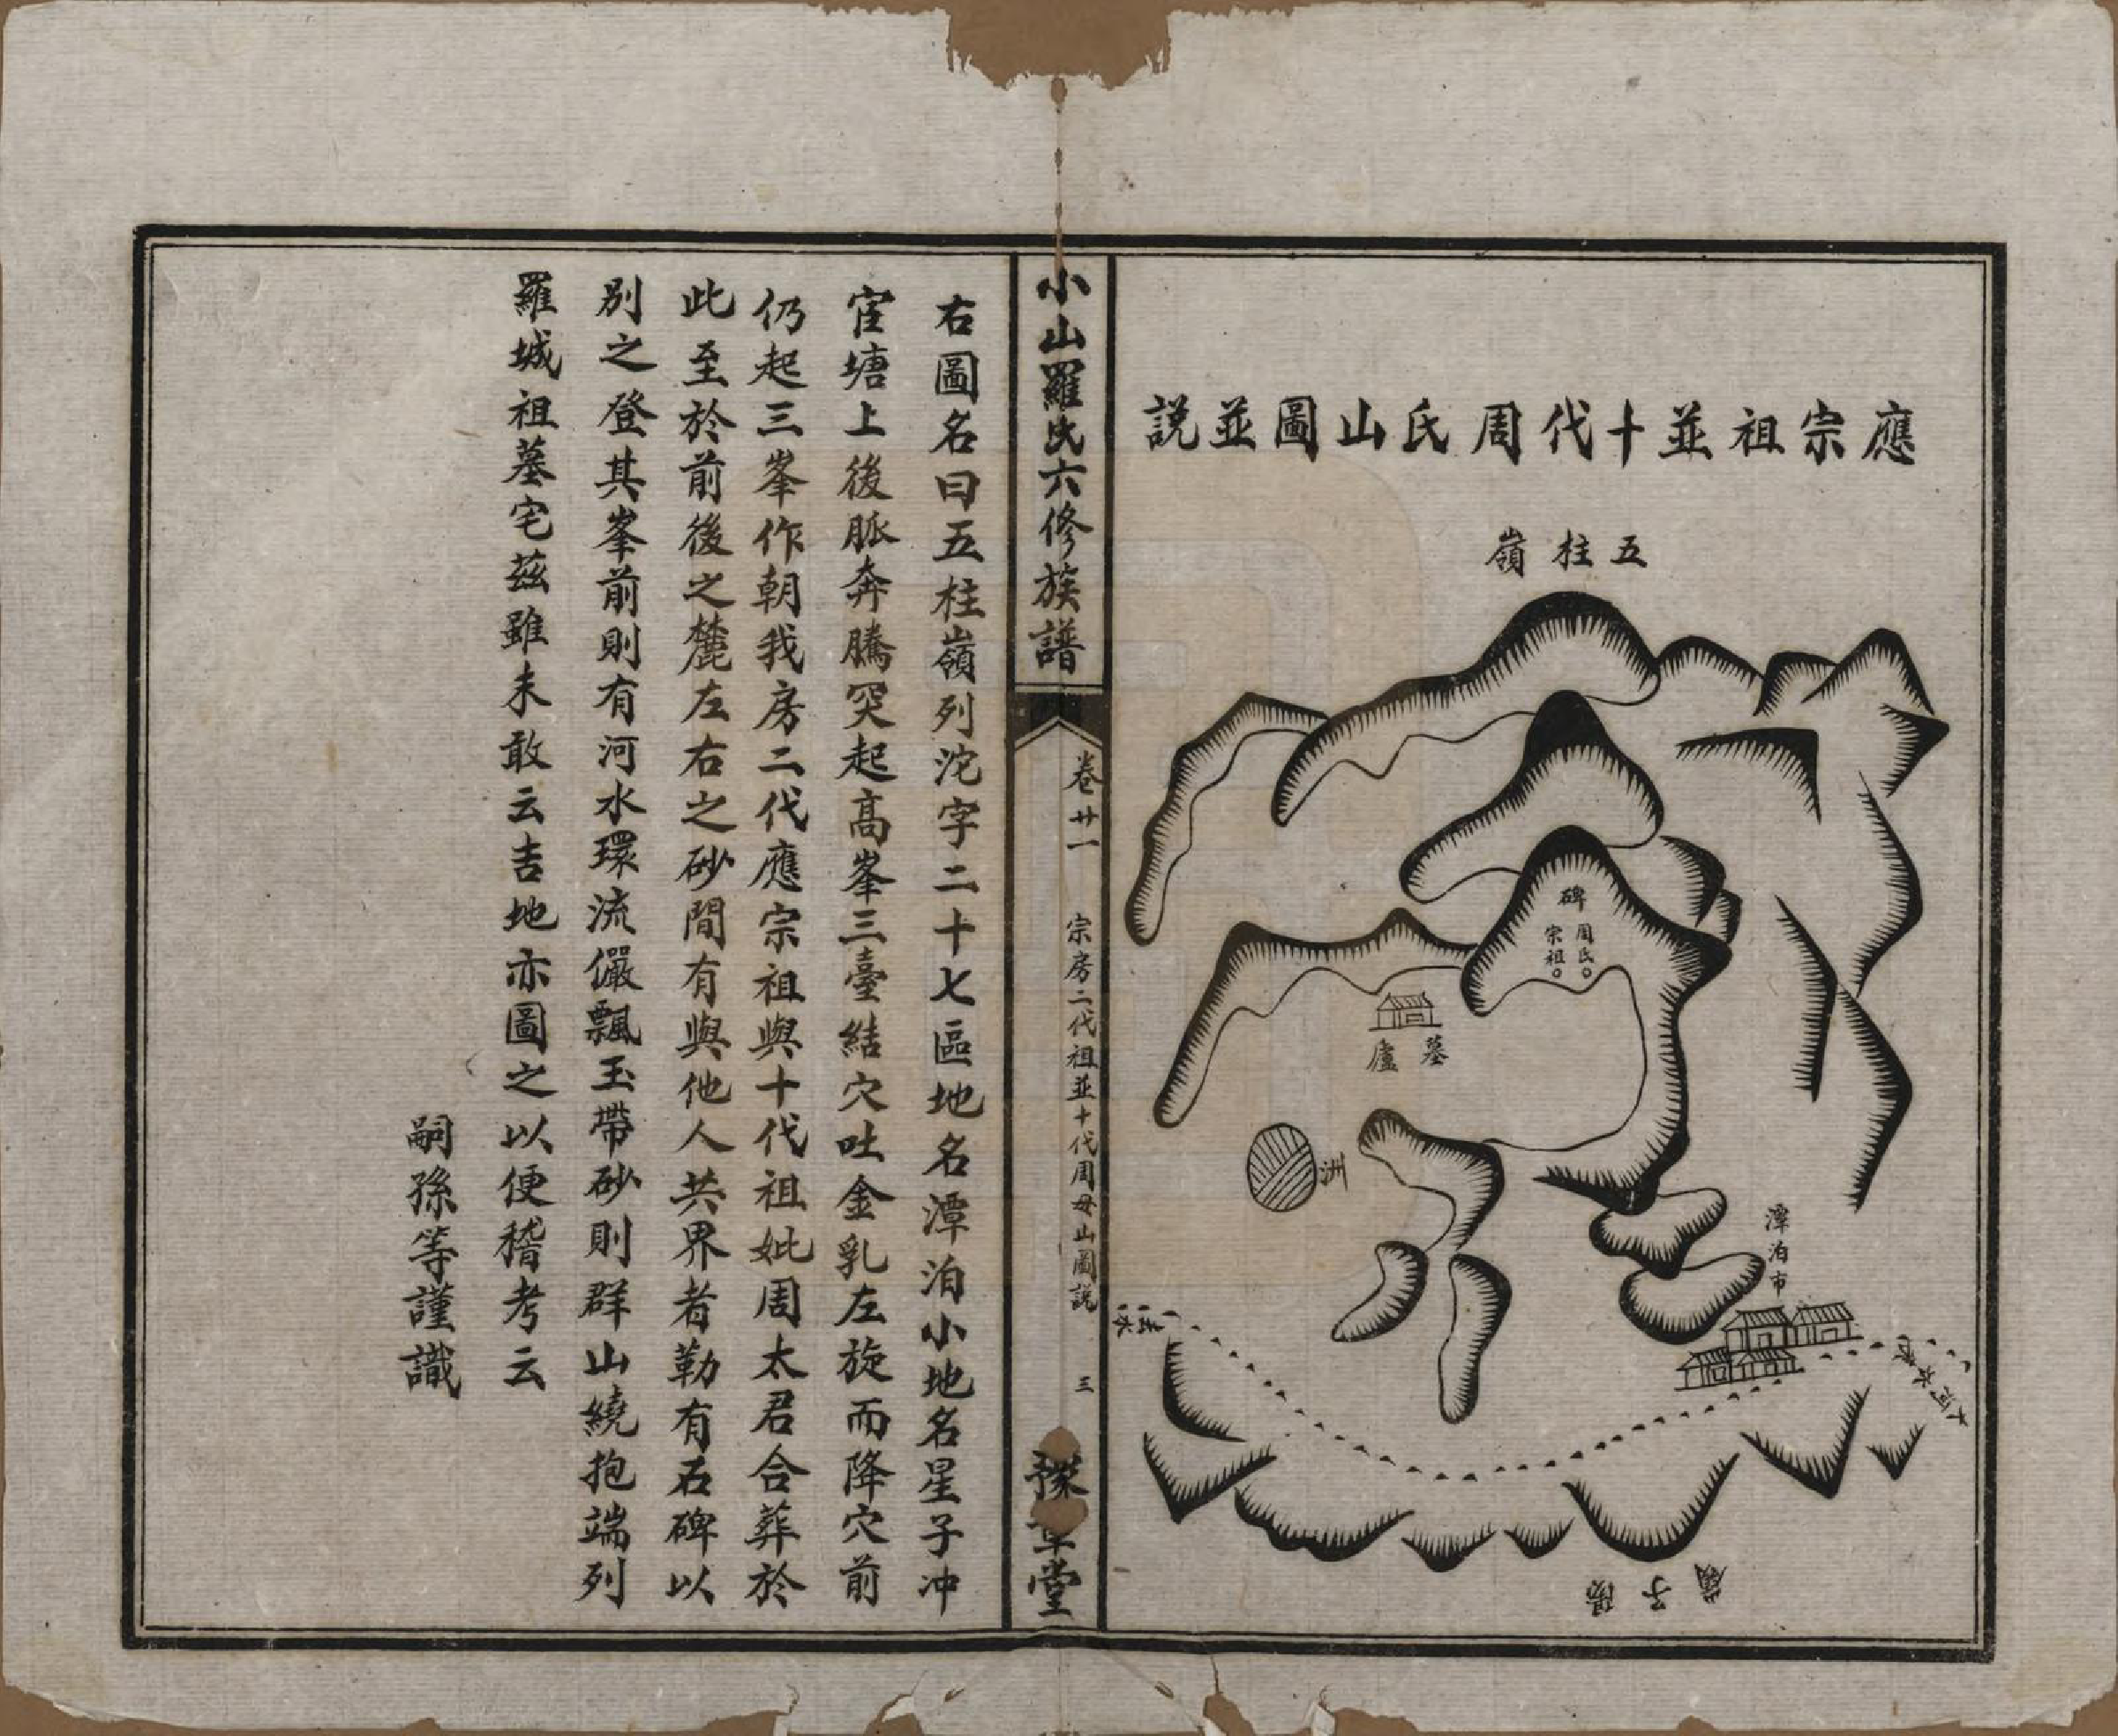 應宗祖並十代周氏山圖並説
五柱嶺
碑
周氏
宗祖
墓廬
洲
潭泊市
大河水來
去水
小山羅氏六修族譜
卷廿一
宗房二代祖並十代周母山圖説
三
豫章堂
右圖名曰五柱嶺列沱字二十七區地名潭泊小地名星子冲
宦塘上後脈奔騰突起高峯三臺結穴吐金乳左旋而降穴前
仍起三峯作朝我房二代應宗祖與十代祖妣周太君合葬於
此至於前後之麓左右之砂間有與他人共界者勒有石碑以
別之登其峯前則有河水環流儼飄玉帶砂則群山繞抱端列
羅城祖墓宅茲雖未敢云吉地亦圖之以便稽考云
嗣孫等謹識